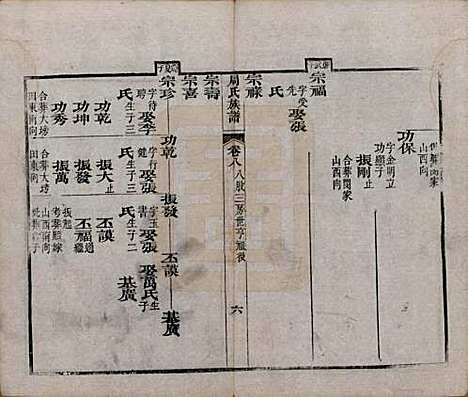 宗福
字受
先
娶張
氏
功保
字金明立
功顯子
振剛止
合葬閔家
山西向
山西向
宗祿
周氏族譜
卷八八股三房世亨胤後
六
宗壽
宗喜
宗珍
字待
聘
娶李
氏生子三
功乾
功坤
功秀
合葬大塝
田東南向
功乾
字行
健
娶張
氏生子三
振發
振大止
振萬
合葬大塝
田東南向
振發
字玉
書
娶張
氏生子二
娶萬氏生
子
丕謨
丕福繼
振魁
山西南向
丕謨
基廣
基廣